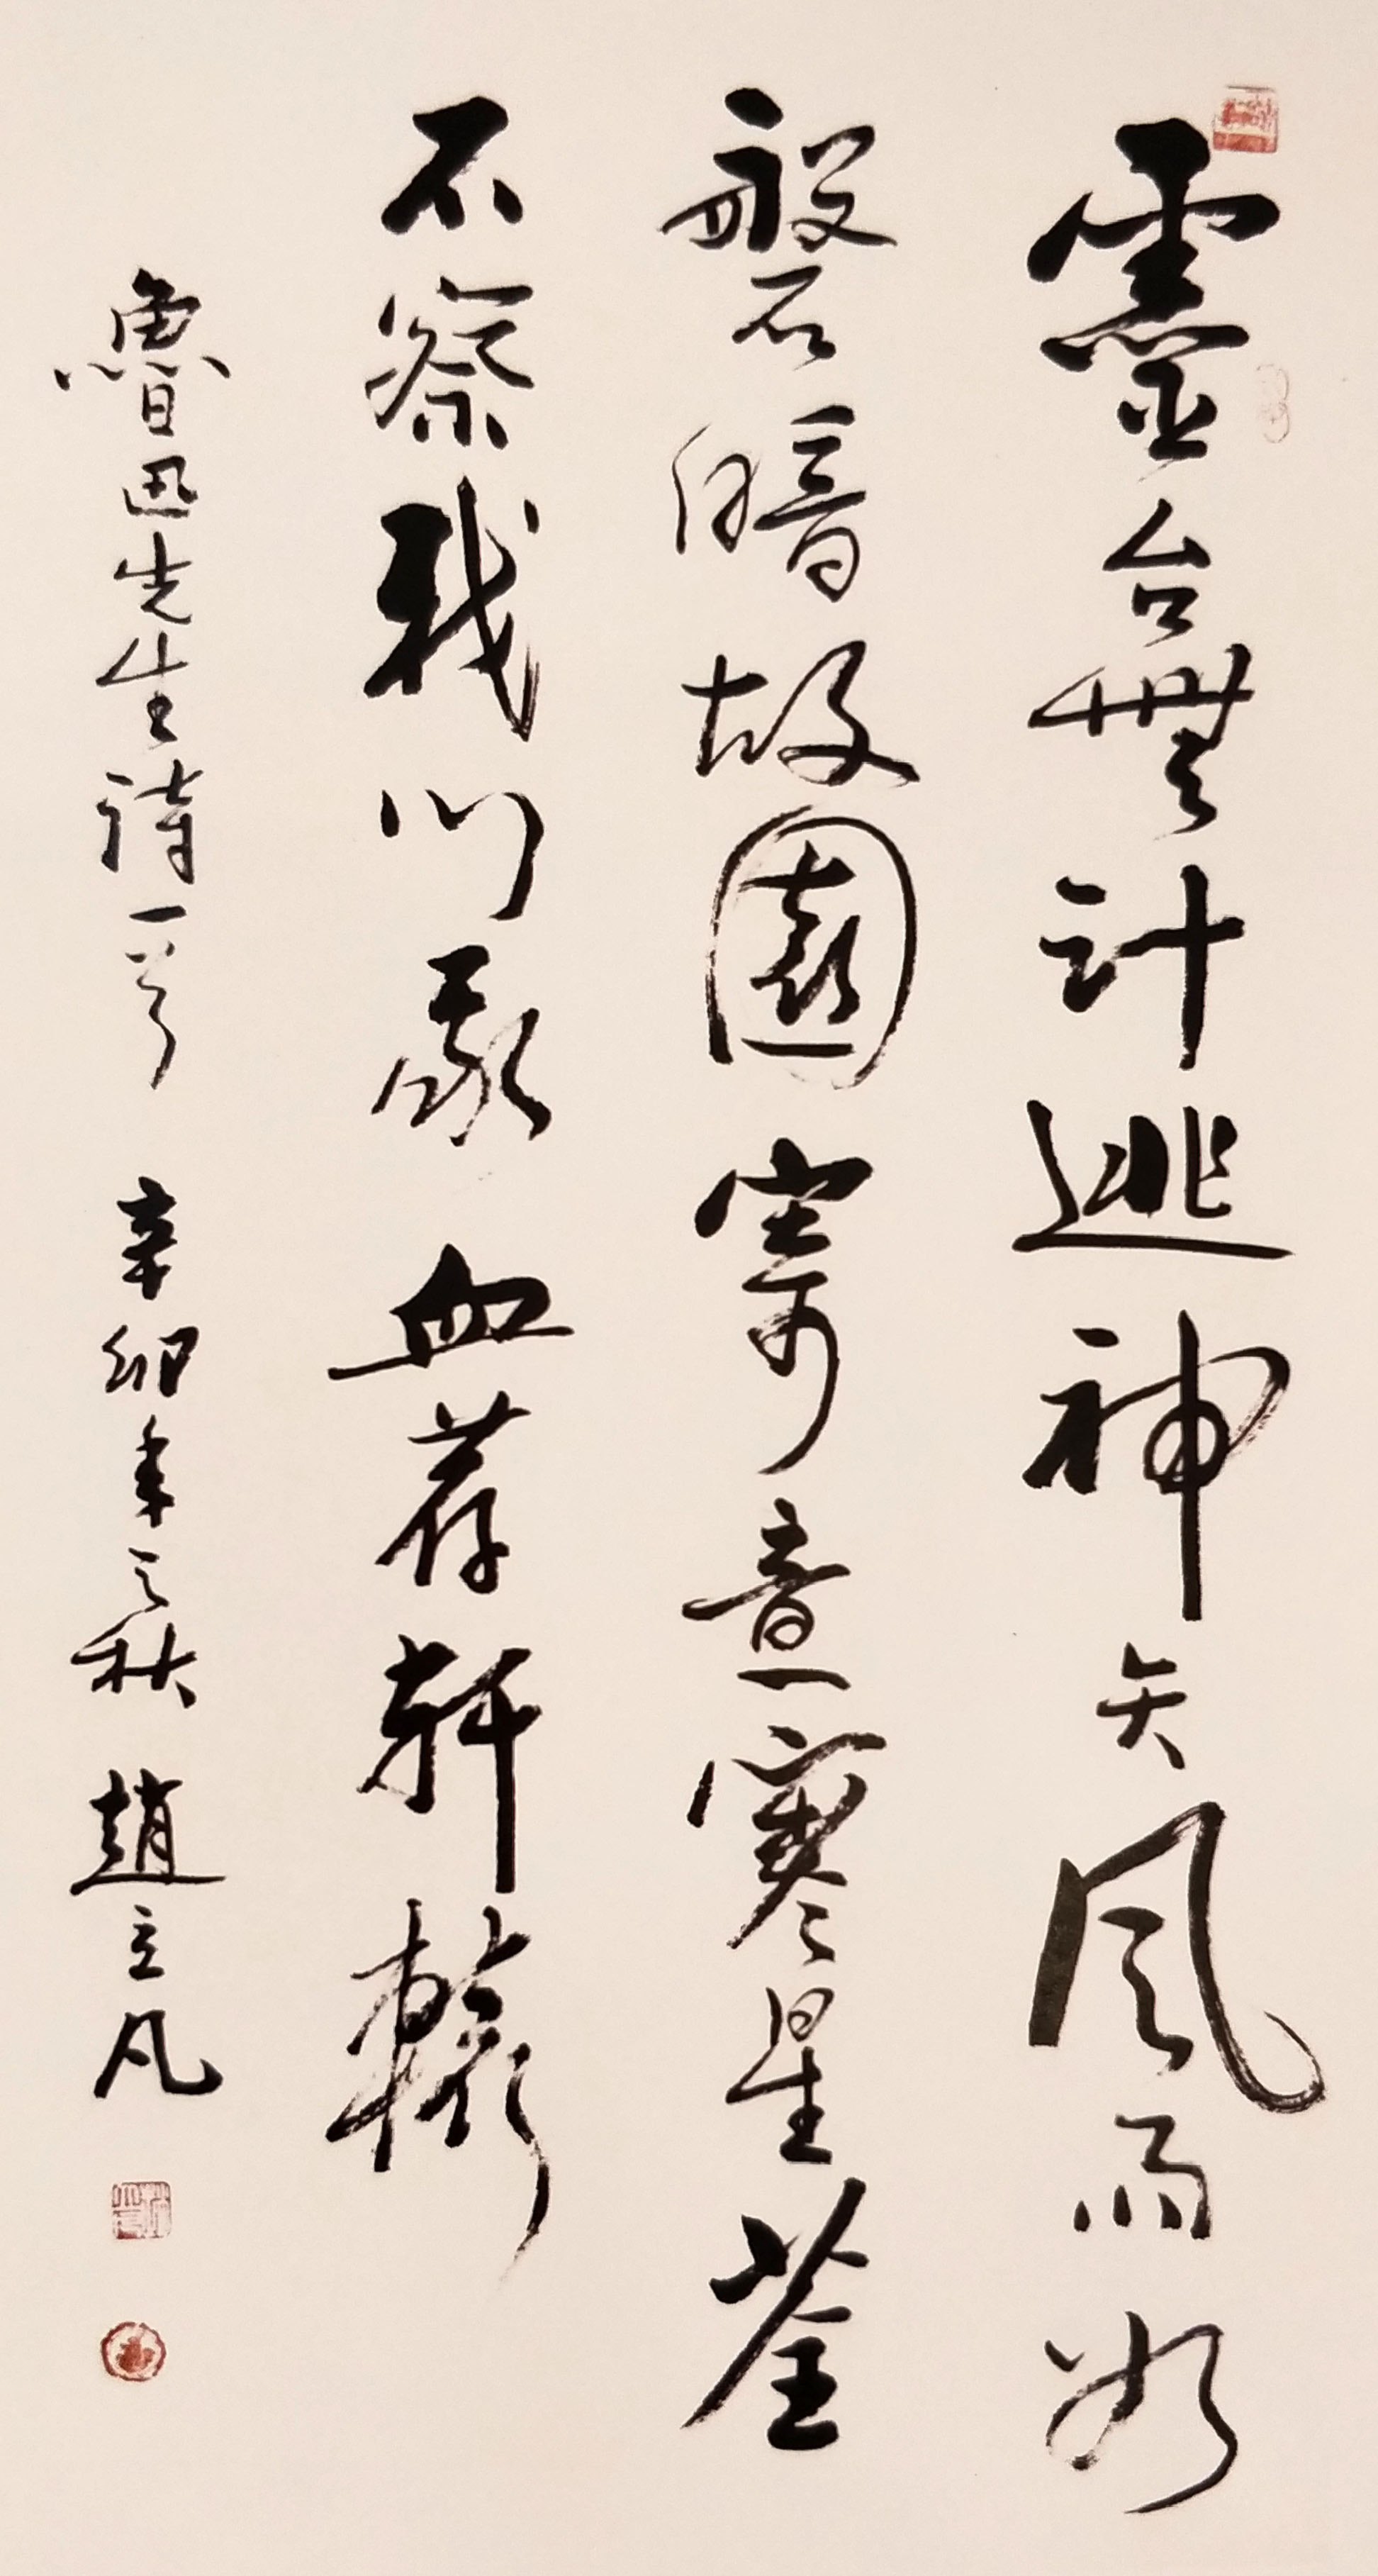 靈台無計逃神矢風雨如
磐暗故園寄意寒星荃
不察我以我血荐軒轅
魯迅先生詩一首 辛卯年之秋 趙立凡